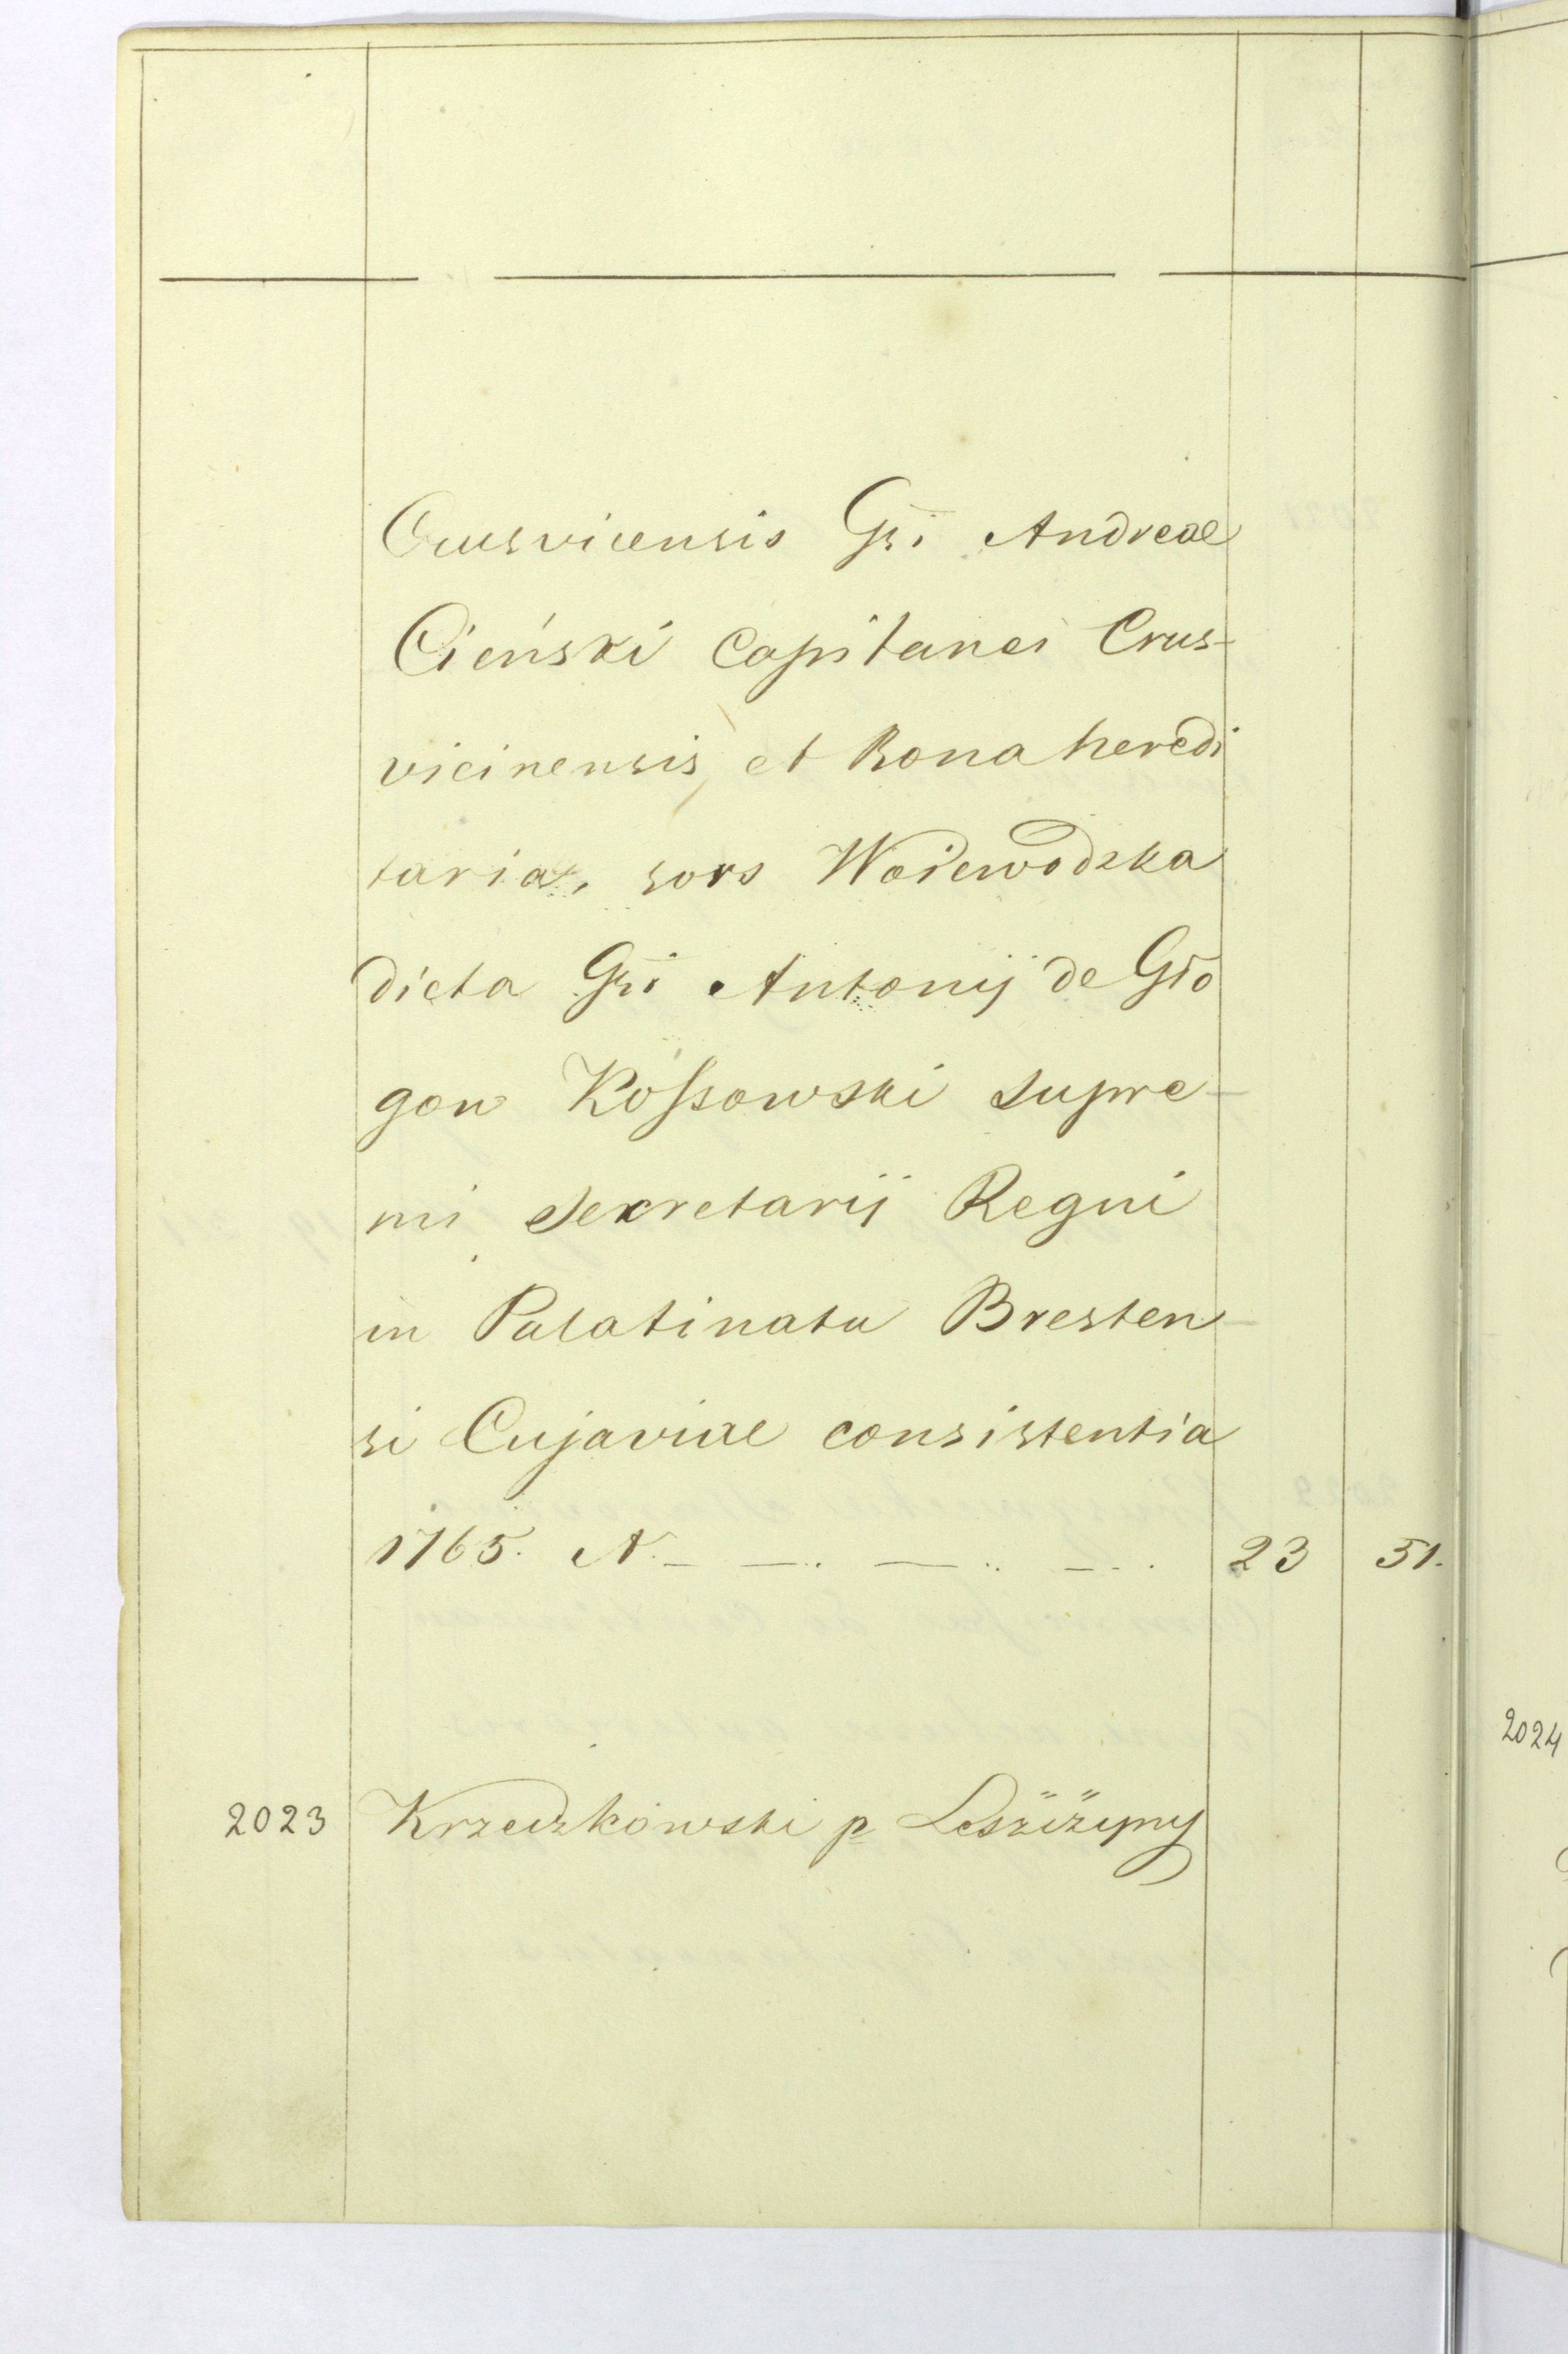 Crusvicensis Gsi Andreae
Cieński Capitanei Crus-
vicinensis, et Bona heredi
taria, sors Woiewodzka
dicta Gsi Antonij de Gło
gow Kossowski supre-
mi Sekretarij Regni
in Palatinatu Bresten-
si Cujaviae consistentia
1765. N. - —. —.. -.. 23 51.
2023 Krzeczkowski p
2024